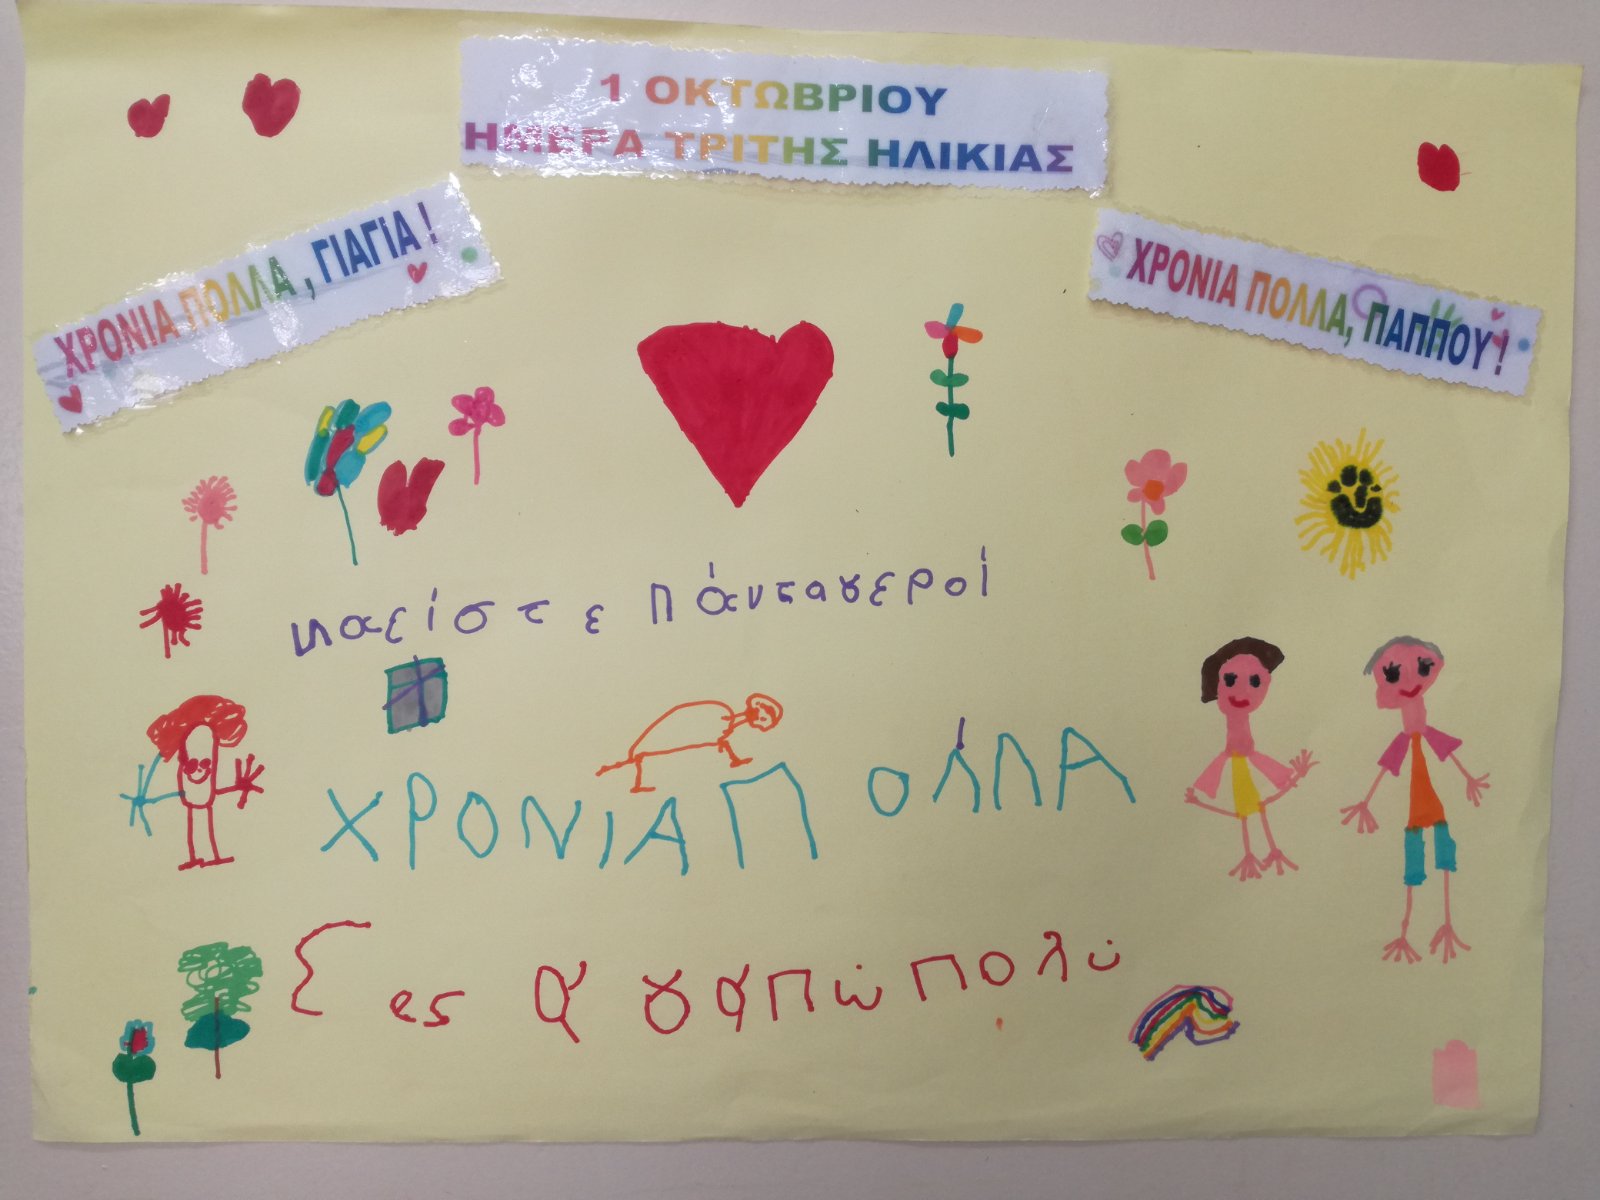 1 ΟΚΤΩΒΡΙΟΥ
ΗΜΕΡΑ ΤΡΙΤΗΣ ΗΛΙΚΙΑΣ
ΧΡΟΝΙΑ ΠΟΛΛΑ , ΓΙΑΓΙΑ !
ΧΡΟΝΙΑ ΠΟΛΛΑ, ΠΑΠΠΟΥ !
ναείστε πάνταγεροί
ΧΡΟΝΙΑ ΠΟΛΛΑ
Σες αγαπώ πολύ